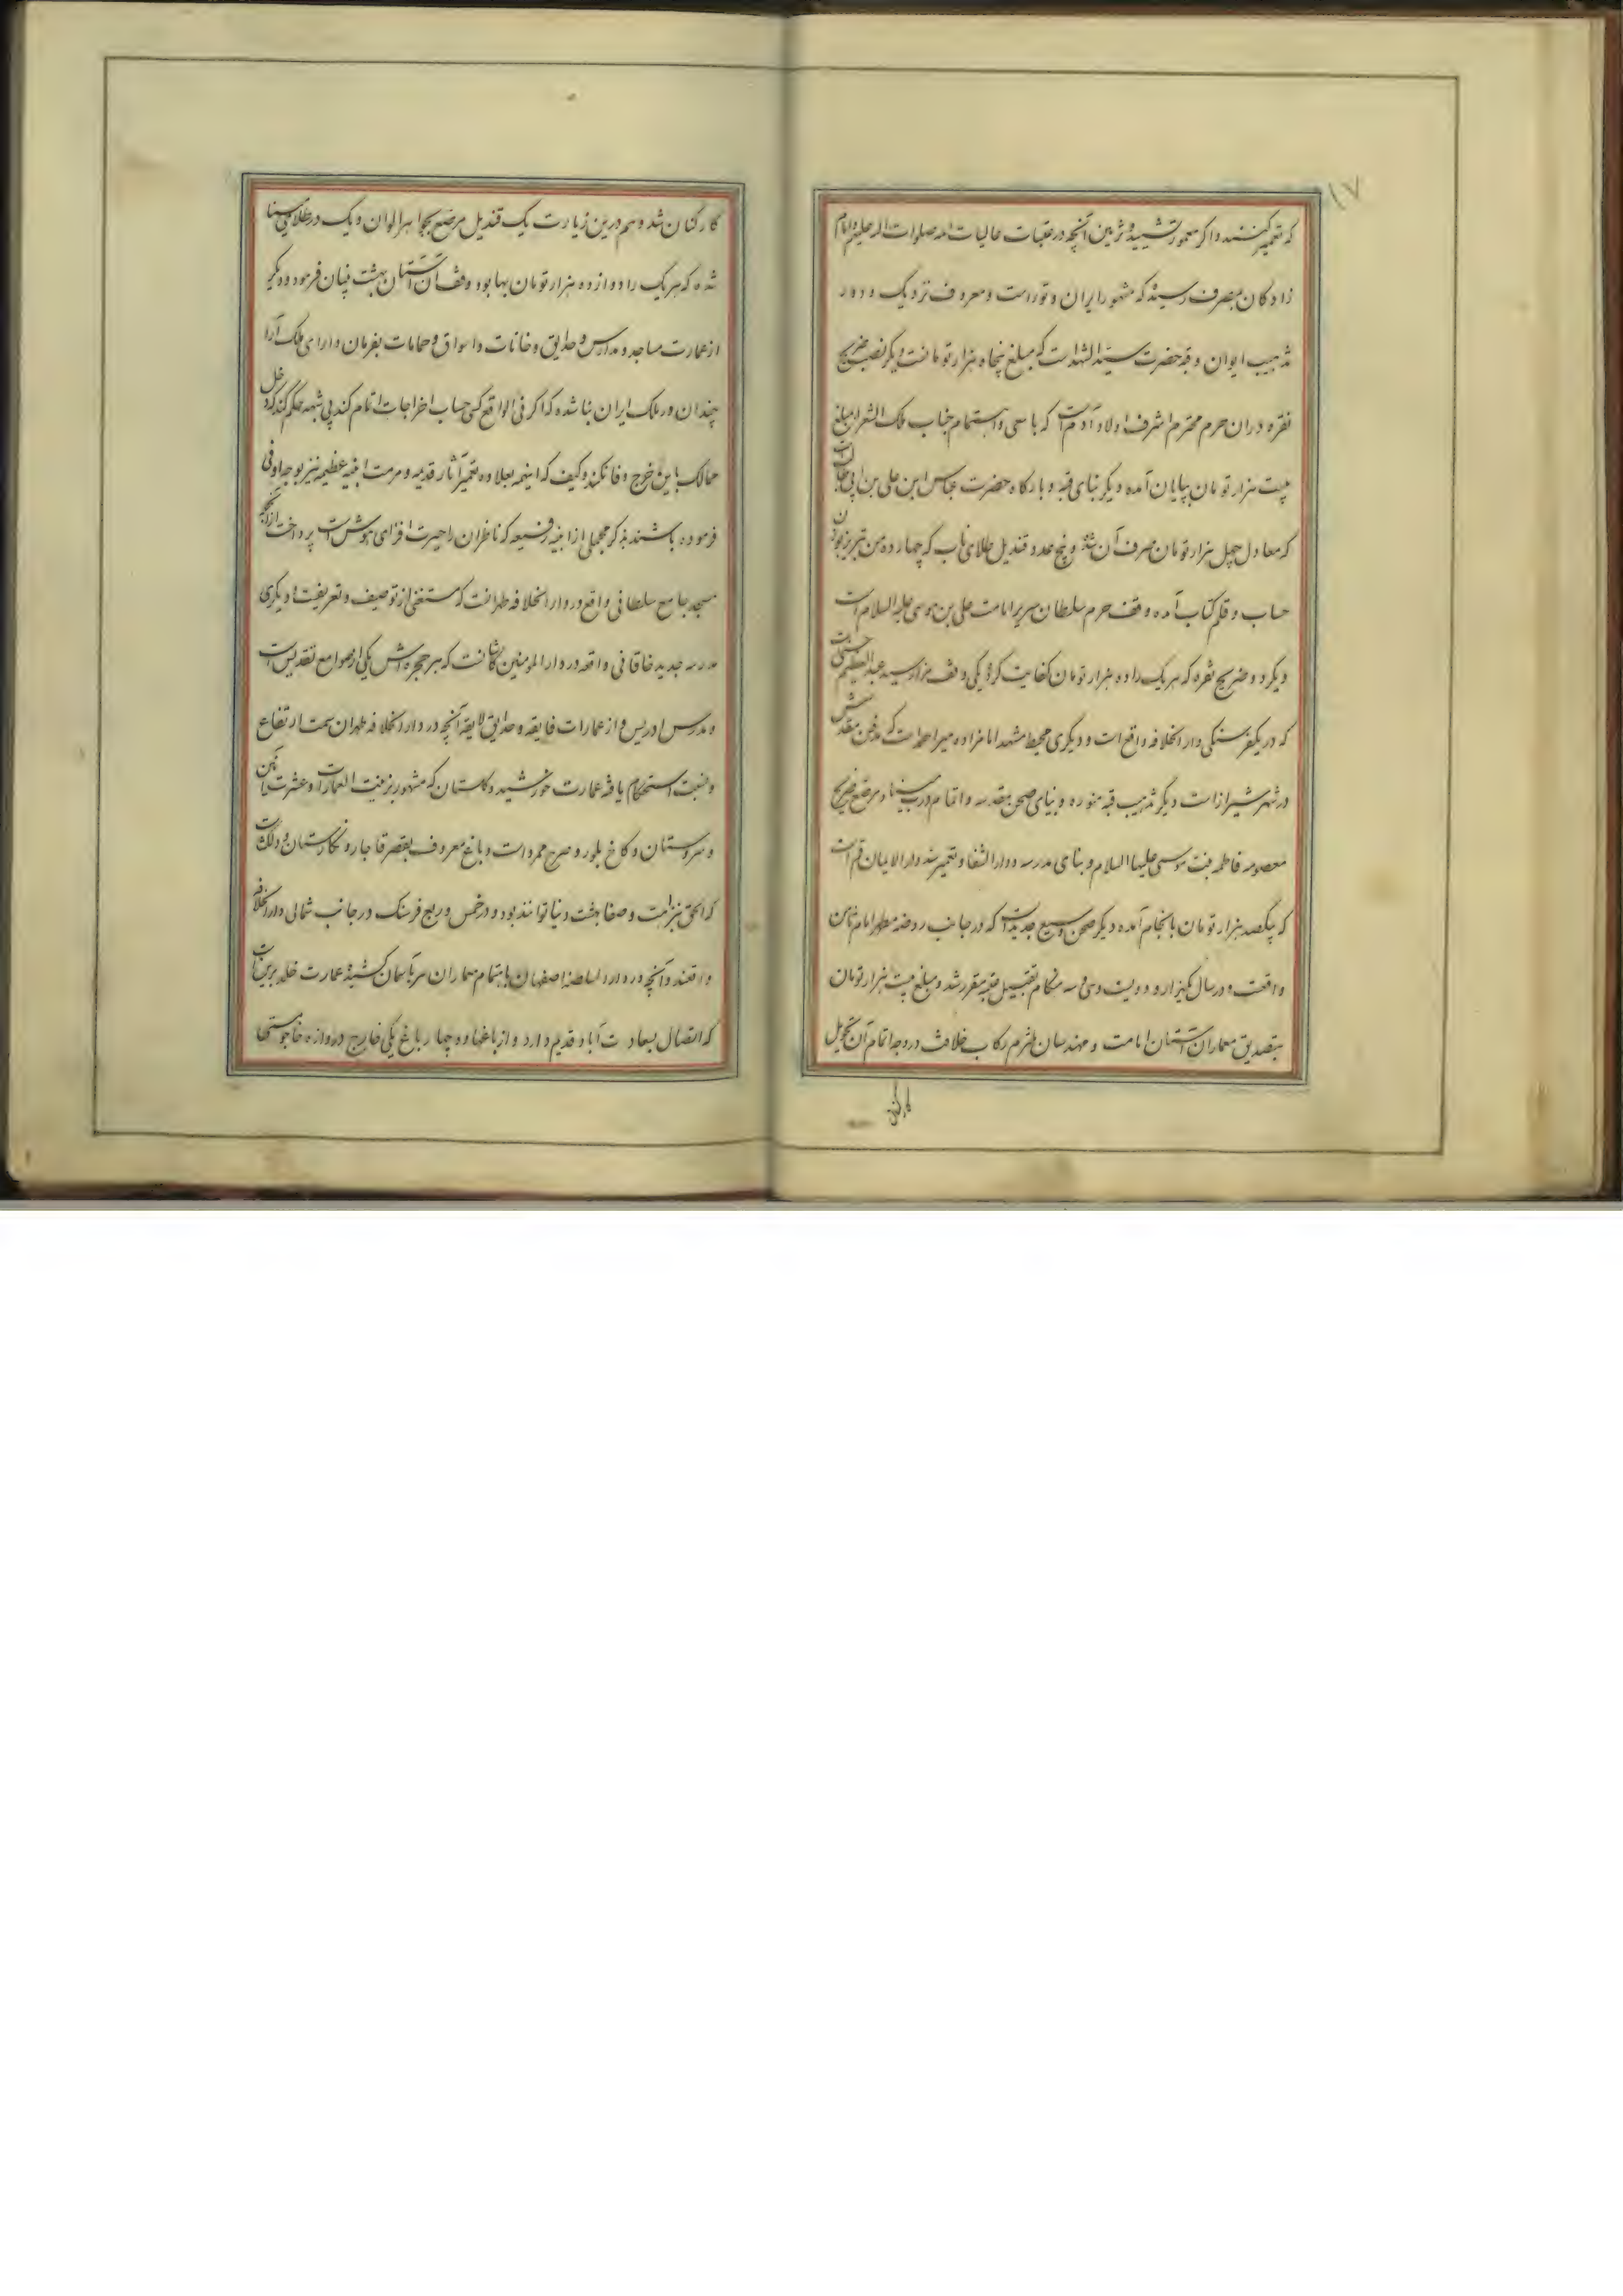 ۱۷
که تعمیر کنند و اگر معمور تشیید و تزیین آنچه در عتبات عالیات ائمه صلوات الله علیهم و امام
زادکان بمصرف رسیده که مشهور ایران و تورانست و معروف نزدیک و دور
تذهیب ایوان و قبه حضرت سید الشهداست که مبلغ پنجاه هزار تومانست دیگر نصب ضریح
نقره در آن حرم محترم اشرف اولاد آدمست که با سعی و اهتمام جناب ملک الشعرا مبلغ
بیست هزار تومان بپایان آمده دیگر بنای قبه و بارکاه حضرت عباس ابن علی بن ابی طالب است
که معادل چهل هزار تومان مصرف آن شد و پنج عدد قندیل طلای ناب که چهارده من تبریز بوزن
حساب و قلم کتاب آمده وقف حرم سلطان سریر امامت علی بن موسی علیه السلام است
دیگر دو ضریح نقره که هر یک را ده هزار تومان کفایت کرد یکی وقف مزار سید عبدالعظیم حسنی است
که در یکفرسنکی دار الخلافه واقع است و دیگری محیط مشهد امامزاده میر احمد است که مدفن مقدسش
در شهر شیراز است دیگر تذهیب قبه منوره و بنای صحن مقدسه و اتمام درب مینا و مرصع ضریح
معصومه فاطمه بنت موسی علیها السلام و بنای مدرسه و دار الشفا و تعمیر سد دار الایمان قم است
که یکصد هزار تومان بانجام آمده دیگر صحن وسیع جدیدیست که در جانب روضه مطهر امام ثامن
واقعست و در سال یکهزار و دویست و سی و سه هنکام تقبیل عتبه مقرر شد و مبلغ بیست هزار تومان
بتصدیق معماران آستان امامت و مهندسان ملتزم رکاب خلافت در وجه اتمام آن تحویل
کارکنان
کارکنان شد و هم درین زیارت یک قندیل مرصع بجواهر الوان و یک در طلای مینا
شده که هر یک را دوازده هزار تومان بها بود وقف آن آستان بهشت بنیان فرمود و دیگر
از عمارت مساجد و مدارس و حدایق و خانات و اسواق و حمامات بفرمان دارای ملک آرا
چندان در ملک ایران بنا شده که اگر فی الواقع کسی حساب اخراجات اتمام کند بی شبهه حکم کند که دخل
ممالک باین خرج وفا نکند و کیف که اینهمه بعلاوه تعمیر آثار قدیمه و مرمت ابنیه عظیمه نیز بوجه اوفی
فرموده باشند بذکر مجملی از ابنیه رفیعه که ناظران را حیرت افزای هوش است پرداخت از آنجمله
مسجد جامع سلطانی واقع در دار الخلافه طهرانست که مستغنی از توصیف و تعریفست و دیگری
مدرسه جدید خاقانی واقعه در دار المومنین کاشانست که هر حجره اش یکی از صوامع تقدیس است
و مدرس ادریس و از عمارات فایقه و حدایق لایقه آنچه در دار الخلافه طهران سمت ارتفاع
و نسبت استحکام یافته عمارت خورشید و کلستان که مشهور بزینت العماراتست و عشرت آیین
و سروستان و کاخ بلور و صرح ممرد است و باغ معروف بقصر قاجار و نکارستان و دلکشاست
که الحق بنزاهت و صفا بهشت دنیا توانند بود و در خمس و ربع فرسنک در جانب شمالی دار الخلافه
واقعند و آنچه در دار السلطنه اصفهان باهتمام معماران سر بآسمان کشیده عمارت خلد برین است
که اتصال بسعادت آباد قدیم دارد و از باغها دو چهار باغ یکی خارج دروازه خاجوستی